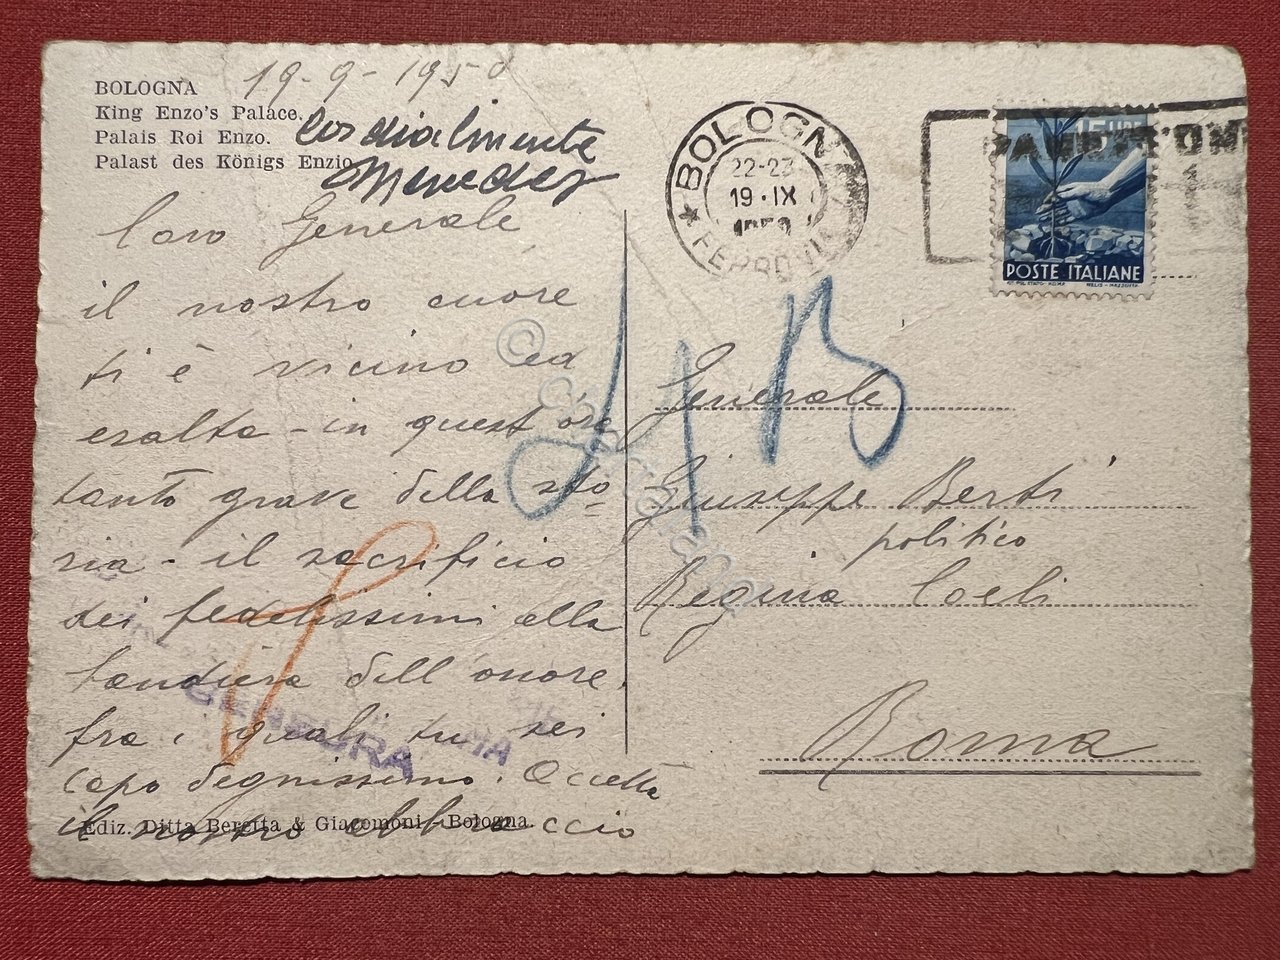 BOLOGNA
King Enzo's Palace.
Palais Roi Enzo.
Palast des Königs Enzio
19-9-1950
Cordialmente
Caro Generale
il nostro cuore
ti è vicino ed
esalta - in quest'ora
tanto grave della sto
ria - il sacrificio
dei fedelissimi alla
bandiera dell'onore,
fra i quali tu sei
capo degnissimo. Accetta
il nostro abbraccio
Ediz. Ditta Beretta & Giacomoni - Bologna.
CENSURA
BOLOGNA
22-23
19·IX
1950
FERROVIA
15 LIRE
POSTE ITALIANE
Generale
Giuseppe Berti
politico
Regina Coeli
Roma